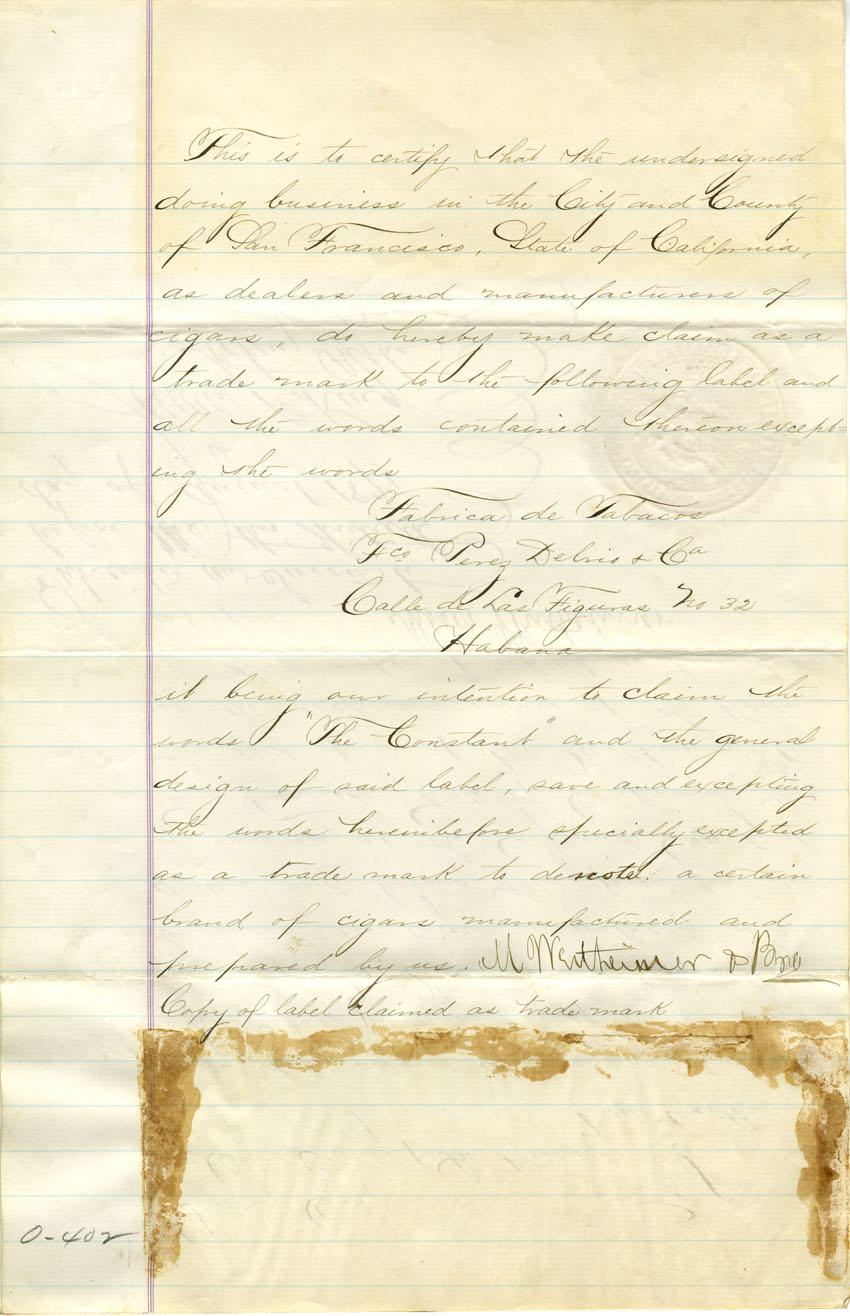 This is to certify that the undersigned
doing business in the City and County
of San Francisco, State of California,
as dealers and manufacturers of
cigars, do hereby make claim as a
trade mark to the following label and
all the words contained thereon except-
ing the words
Fabrica de Tabacos
Fco Perez Delrio & Ca
Calle de Las Figuras No 32
Habana
it being our intention to claim the
words "The Constant" and the general
design of said label, save and excepting
the words hereinbefore specially excepted
as a trade mark to denote a certain
brand of cigars manufactured and
prepared by us. M Wertheimer & Bro
Copy of label claimed as trade mark
O-402